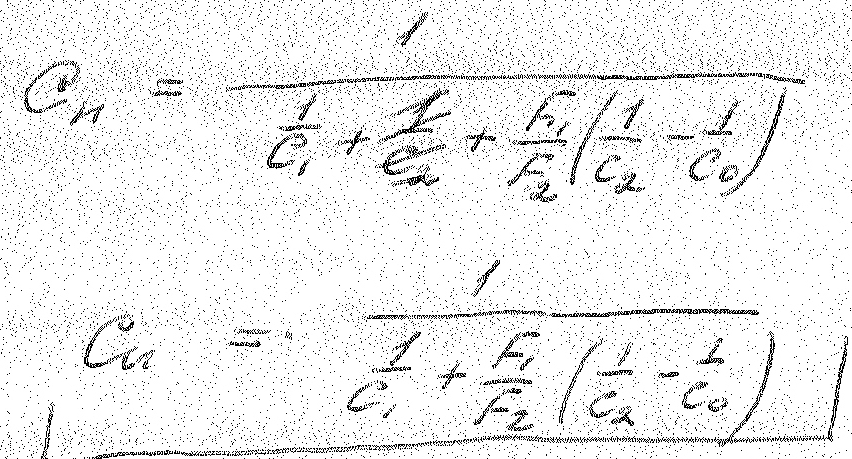 C_n = 1 / (1/C_1 + 1/C_2 + F_1/F_2 (1/C_2 - 1/C_0))
C_n = 1 / (1/C_1 + F_1/F_2 (1/C_2 - 1/C_0))